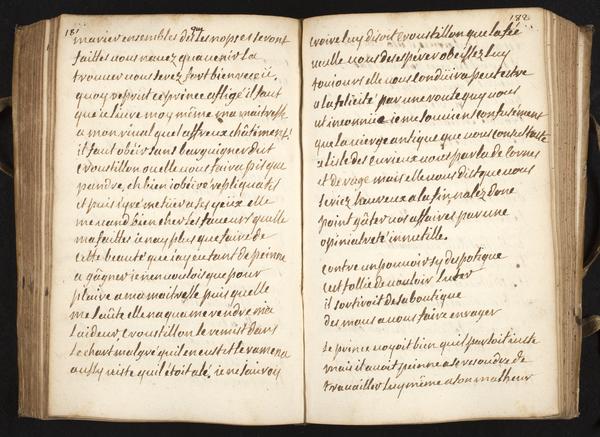 181
marier ensembles du les nopses seront
faittes vous navez qua venir la
trouver vous serez fort bien reçeü.
quoy reprit ce prince affligé il faut
que je livre moy même ma maitresse
a mon rival quel affreux châtiment!
il faut obéir sans barguigner dit
Croustillon ou elle vous faira pis que
pandre, eh bien iobéiré repliqua til
et puis que metier a ses yeüx elle
me vand bien cher les faveurs qu'elle
ma faittes ie nay plus que faire de
cette beauté que iay eu tant de peinne
a gâgner ie nen voulois que pour
plaire a ma maitresse puis quelle
me laûte elle na qua me rendre ma
laideur, Croustillon le remit dans
le chart malgré quil en eut et le ramena
aussy viste quil étoit alé, ie ne sauroi
182
croire luy disoit Croustillon que la fée
veuille vous desesperer obeissez luy
toujours elle nous conduira peut estre
a la félicité par une route quy nous
est inconnüe ie me souviens confusément
que la vierge antique que nous consultâ
a liste des Curieux vous parla de Cornes
et de rage mais elle nous dist que vous
seriez heureux a la fin nalez donc
point gâter vos affaires par une
opiniatreté innutille.
contre un pouvoir sy despotique
cest follie de vouloir luter
il sortiroit de sa boutique
des maus a nous faire enrager
Le prince voyoit bien quil parloit iuste
mais il avoit peinne a se resoudre de
travailler luy même a son malheur